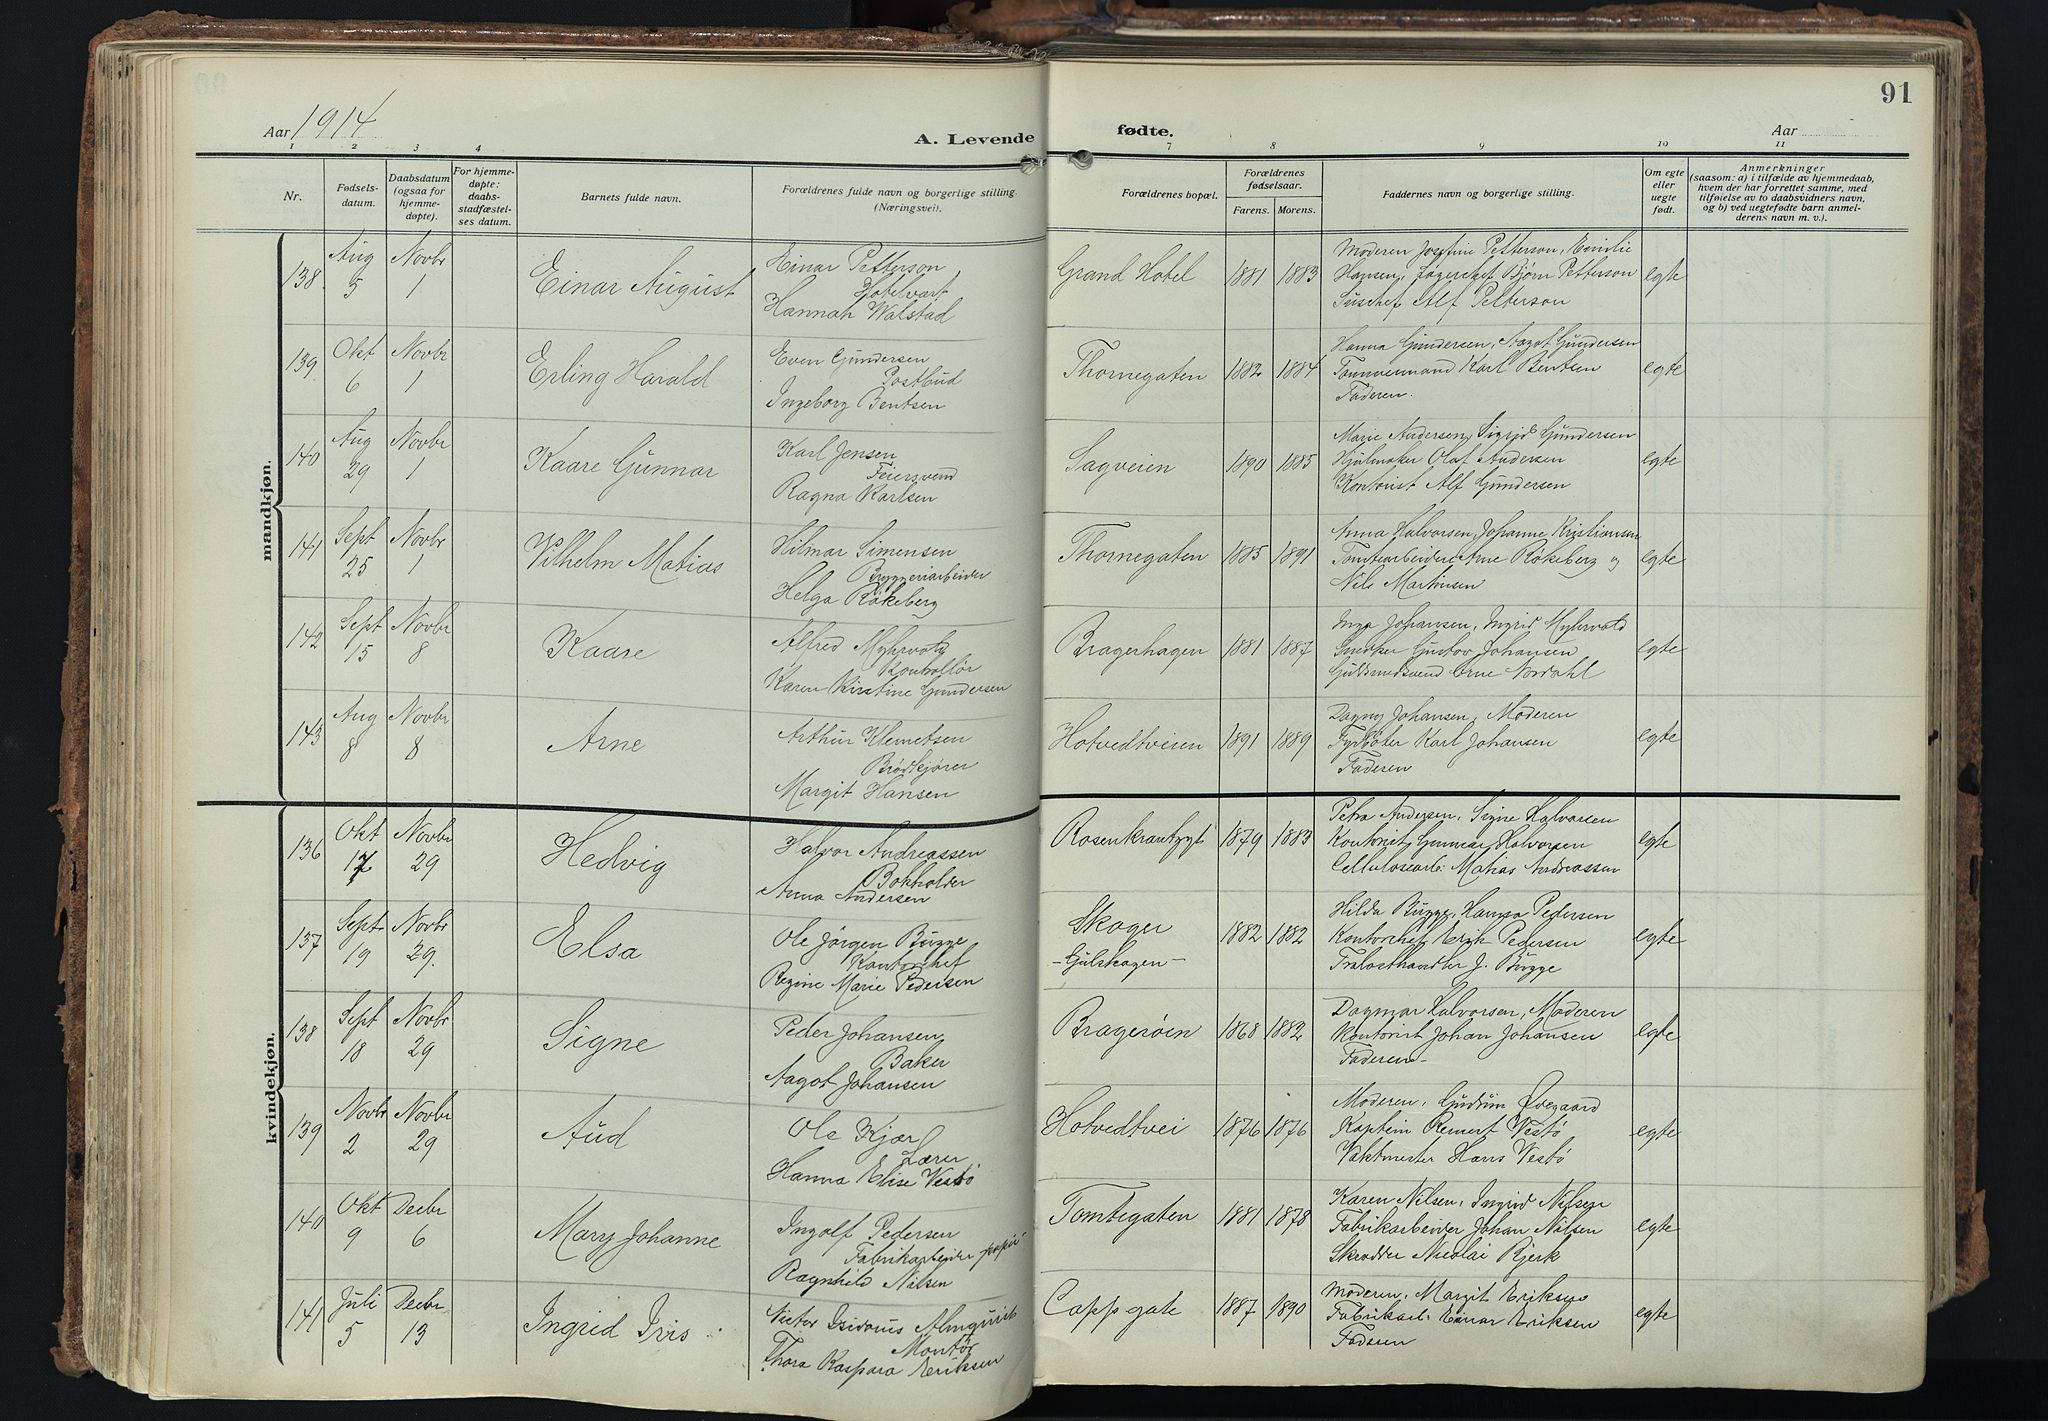 91
Aar 1914
A. Levende
fødte.
Aar
1 2 3 4 7 8 9 10 11
Nr.
Fødsels-
datum.
Daabsdatum
(ogsaa for
hjemme-
døpte).
For hjemme-
døpte:
daabs-
stadfæstel-
ses datum.
Barnets fulde navn.
Forældrenes fulde navn og borgerlige stilling.
(Næringsvei).
Forældrenes bopæl.
Forældrenes
fødselsaar.
Farens. Morens.
Faddernes navn og borgerlige stilling.
Om egte
eller
uegte
født.
Anmerkninger
(saasom: a) i tilfælde av hjemmedaab,
hvem der har forrettet samme, med
tilføielse av to daabsvidners navn,
og b) ved uegtefødte barn anmel-
derens navn m. v.).
mandkjøn.
138 Aug 5 Novbr 1 Einar August
Einar Petterson
Hotelvært
Hannah Walstad
Grand Hotel 1881 1883
Moderen Josefine Petterson, Emilie
Hansen, Bjørn Petterson
Alf Petterson
egte
139 Okt 6 Novbr 1 Erling Harald
Even Gundersen
Postbud
Ingeborg Bentsen
Thornegaten 1882 1884
Hanna Gundersen, Aagot Gundersen
Tømmermand Karl Bentsen
Faderen.
egte
140 Aug 29 Novbr 1 Kaare Gunnar
Karl Jensen
Feiersvend
Ragna Karlsen
Sagveien 1890 1885
Marie Andersen, Sigrid Gundersen
Hjulmaker Olaf Andersen
Kontorist Alf Gundersen
egte
141 Sept 25 Novbr 1 Vilhelm Matias
Hilmar Simensen
Bryggeriarbeider
Helga Røkeberg
Thornegaten 1885 1891
Anna Halvorsen, Johanne Kristiansen
Tomtearbeidere Arne Røkeberg og
Nils Martinsen
egte
142 Sept 15 Novbr 8 Kaare
Alfred Myhrvold
Kontrollør
Karen Kirstine Gundersen
Bragerhagen 1881 1887
Inga Johansen, Ingrid Myhrvold
Snekker Gustav Johansen
Guldsmedsvend Arne Nordahl
egte
143 Aug 8 Novbr 8 Arne
Arthur Klemetsen
Brødkjører
Margit Hansen
Hotvedtveien 1891 1889
Dagny Johansen, Moderen
Fyrbøter Karl Johansen
Faderen
egte
kvindekjøn.
136 Okt 17 Novbr 29 Hedvig
Halvor Andreassen
Bokholder
Anna Andersen
Rosenkrantzgt 1879 1883
Petra Andersen, Signe Halvorsen
Kontorist Gunnar Halvorsen
Celluloscarb: Matias Andreassen
egte
137 Sept 19 Novbr 29. Elsa
Ole Jørgen Bugge
Kontorchef
Regine Marie Pedersen
Skoger
- Gulskogen - 1882 1882
Hilda Bugge, Hanna Pedersen
Kontorchef Erik Pedersen
Trælasthandler J. Bugge
egte
138 Sept 18 Novbr 29 Signe
Peder Johansen
Baker
Aagot Johansen
Bragerøen 1868 1882
Dagmar Halvorsen, Moderen
Kontorist Johan Johansen
Faderen -
egte
139 Novbr 2 Novbr 29 Aud
Ole Kjær
Lærer
Hanna Elise Vestø
Hotvedtvei 1876 1876
Moderen, Gudrun Ovegaard
Kaptein Remert Vestø
Vaktmester Hans Vestø
egte
140 Okt 9 Decbr 6 Mary Johanne
Ingolf Pedersen
Fabrikarbeider papir
Ragnhild Nilsen
Tomtegaten 1881 1878
Karen Nilsen, Ingrid Nilsen
Fabrikarbeider Johan Nilsen
Skrædder Nicolai Bjerk
egte
141 Juli 5 Decbr 13 Ingrid Iris
Victor Isidorus Almquist
Montør
Thora Kaspara Eriksen
Cappsgate 1887 1890
Moderen, Margit Eriksen
Fabriksarb: Einar Eriksen
Faderen
egte